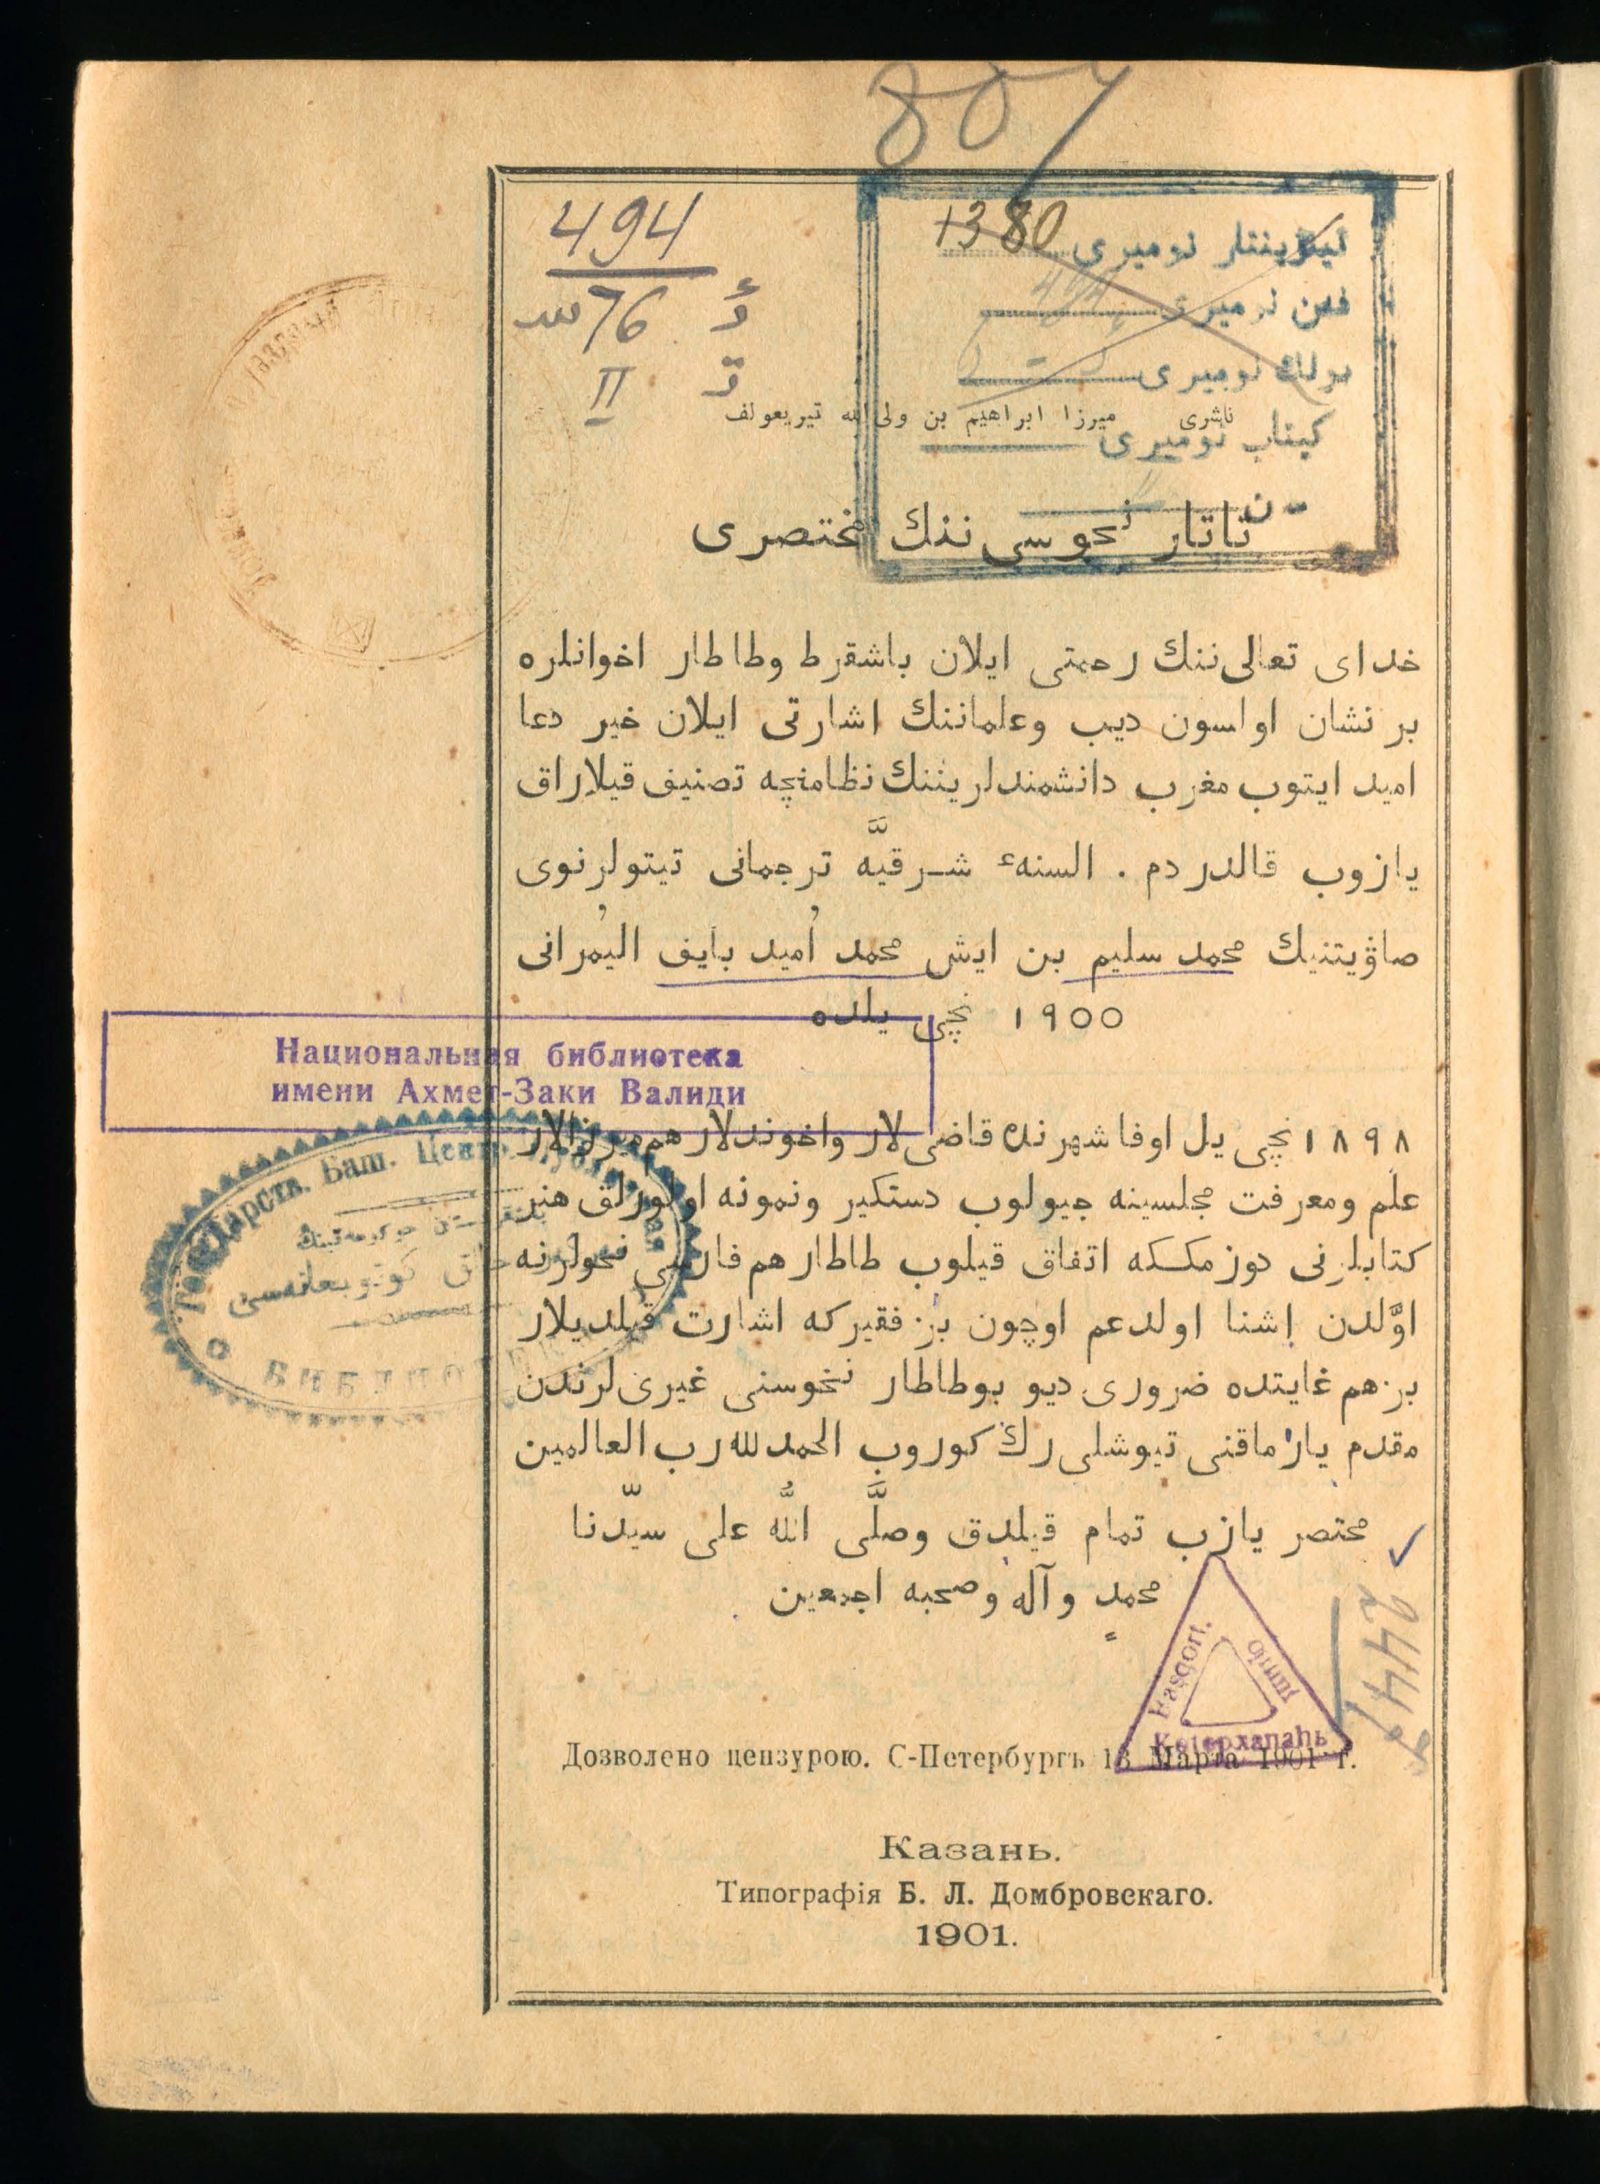 807
494
76
II
1380
ئينۋينتار نوميرى
فەن نوميرى
بولك نوميرى
كيتاب نوميرى
ناشرى ميرزا ابراهيم بن ولى الله
تاتار نحوسى ننك مختصرى
خداى تعالى ننك رحمتى ايلان باشقرط وطاطار اخوانلره
بر نشان اولسون ديب وعلماننك اشارتى ايلان خير دعا
اميد ايتوب مغرب دانشمندلريننك نظامنچه تصنيف قيلاراق
يازوب قالدردم . السنهء شرقيَّه ترجمانى تيتولرنوى
صاۋيتنيك محمد سليم بن ايش محمد اُميد بايف اليُمرانى
١٩٠٠ نچى يلده
Национальная библиотека
имени Ахмет-Заки Валиди
١٨٩٨ نچى يل اوفا شهرنده قاضى لار واخوندلار هم ميرزالار
علم ومعرفت مجلسينه جيولوب دستكير ونمونه اولورلق هنر
كتابلرنى دوزمككه اتفاق قيلوب طاطار هم فارسى نحولرنه
اوَّلدن اشنا اولدغم اوچون بز فقيركه اشارت قيلديلار
بز هم غايتده ضرورى ديو بوطاطار نحوسنى غيرى لرندن
مقدم يازماقنى تيوشلى رك كوروب الحمد لله رب العالمين
مختصر يازب تمام قيلدق وصلَّى اللَّه على سيّدنا
محمدٍ وآله وصحبه اجمعين
Государств. Баш. Центр.
БИБЛИОТЕКА
2449
Başqort.
Ketepxanahь
Дозволено цензурою. С-Петербургъ 13 Марта 1901 г.
Казань.
Типографія Б. Л. Домбровскаго.
1901.